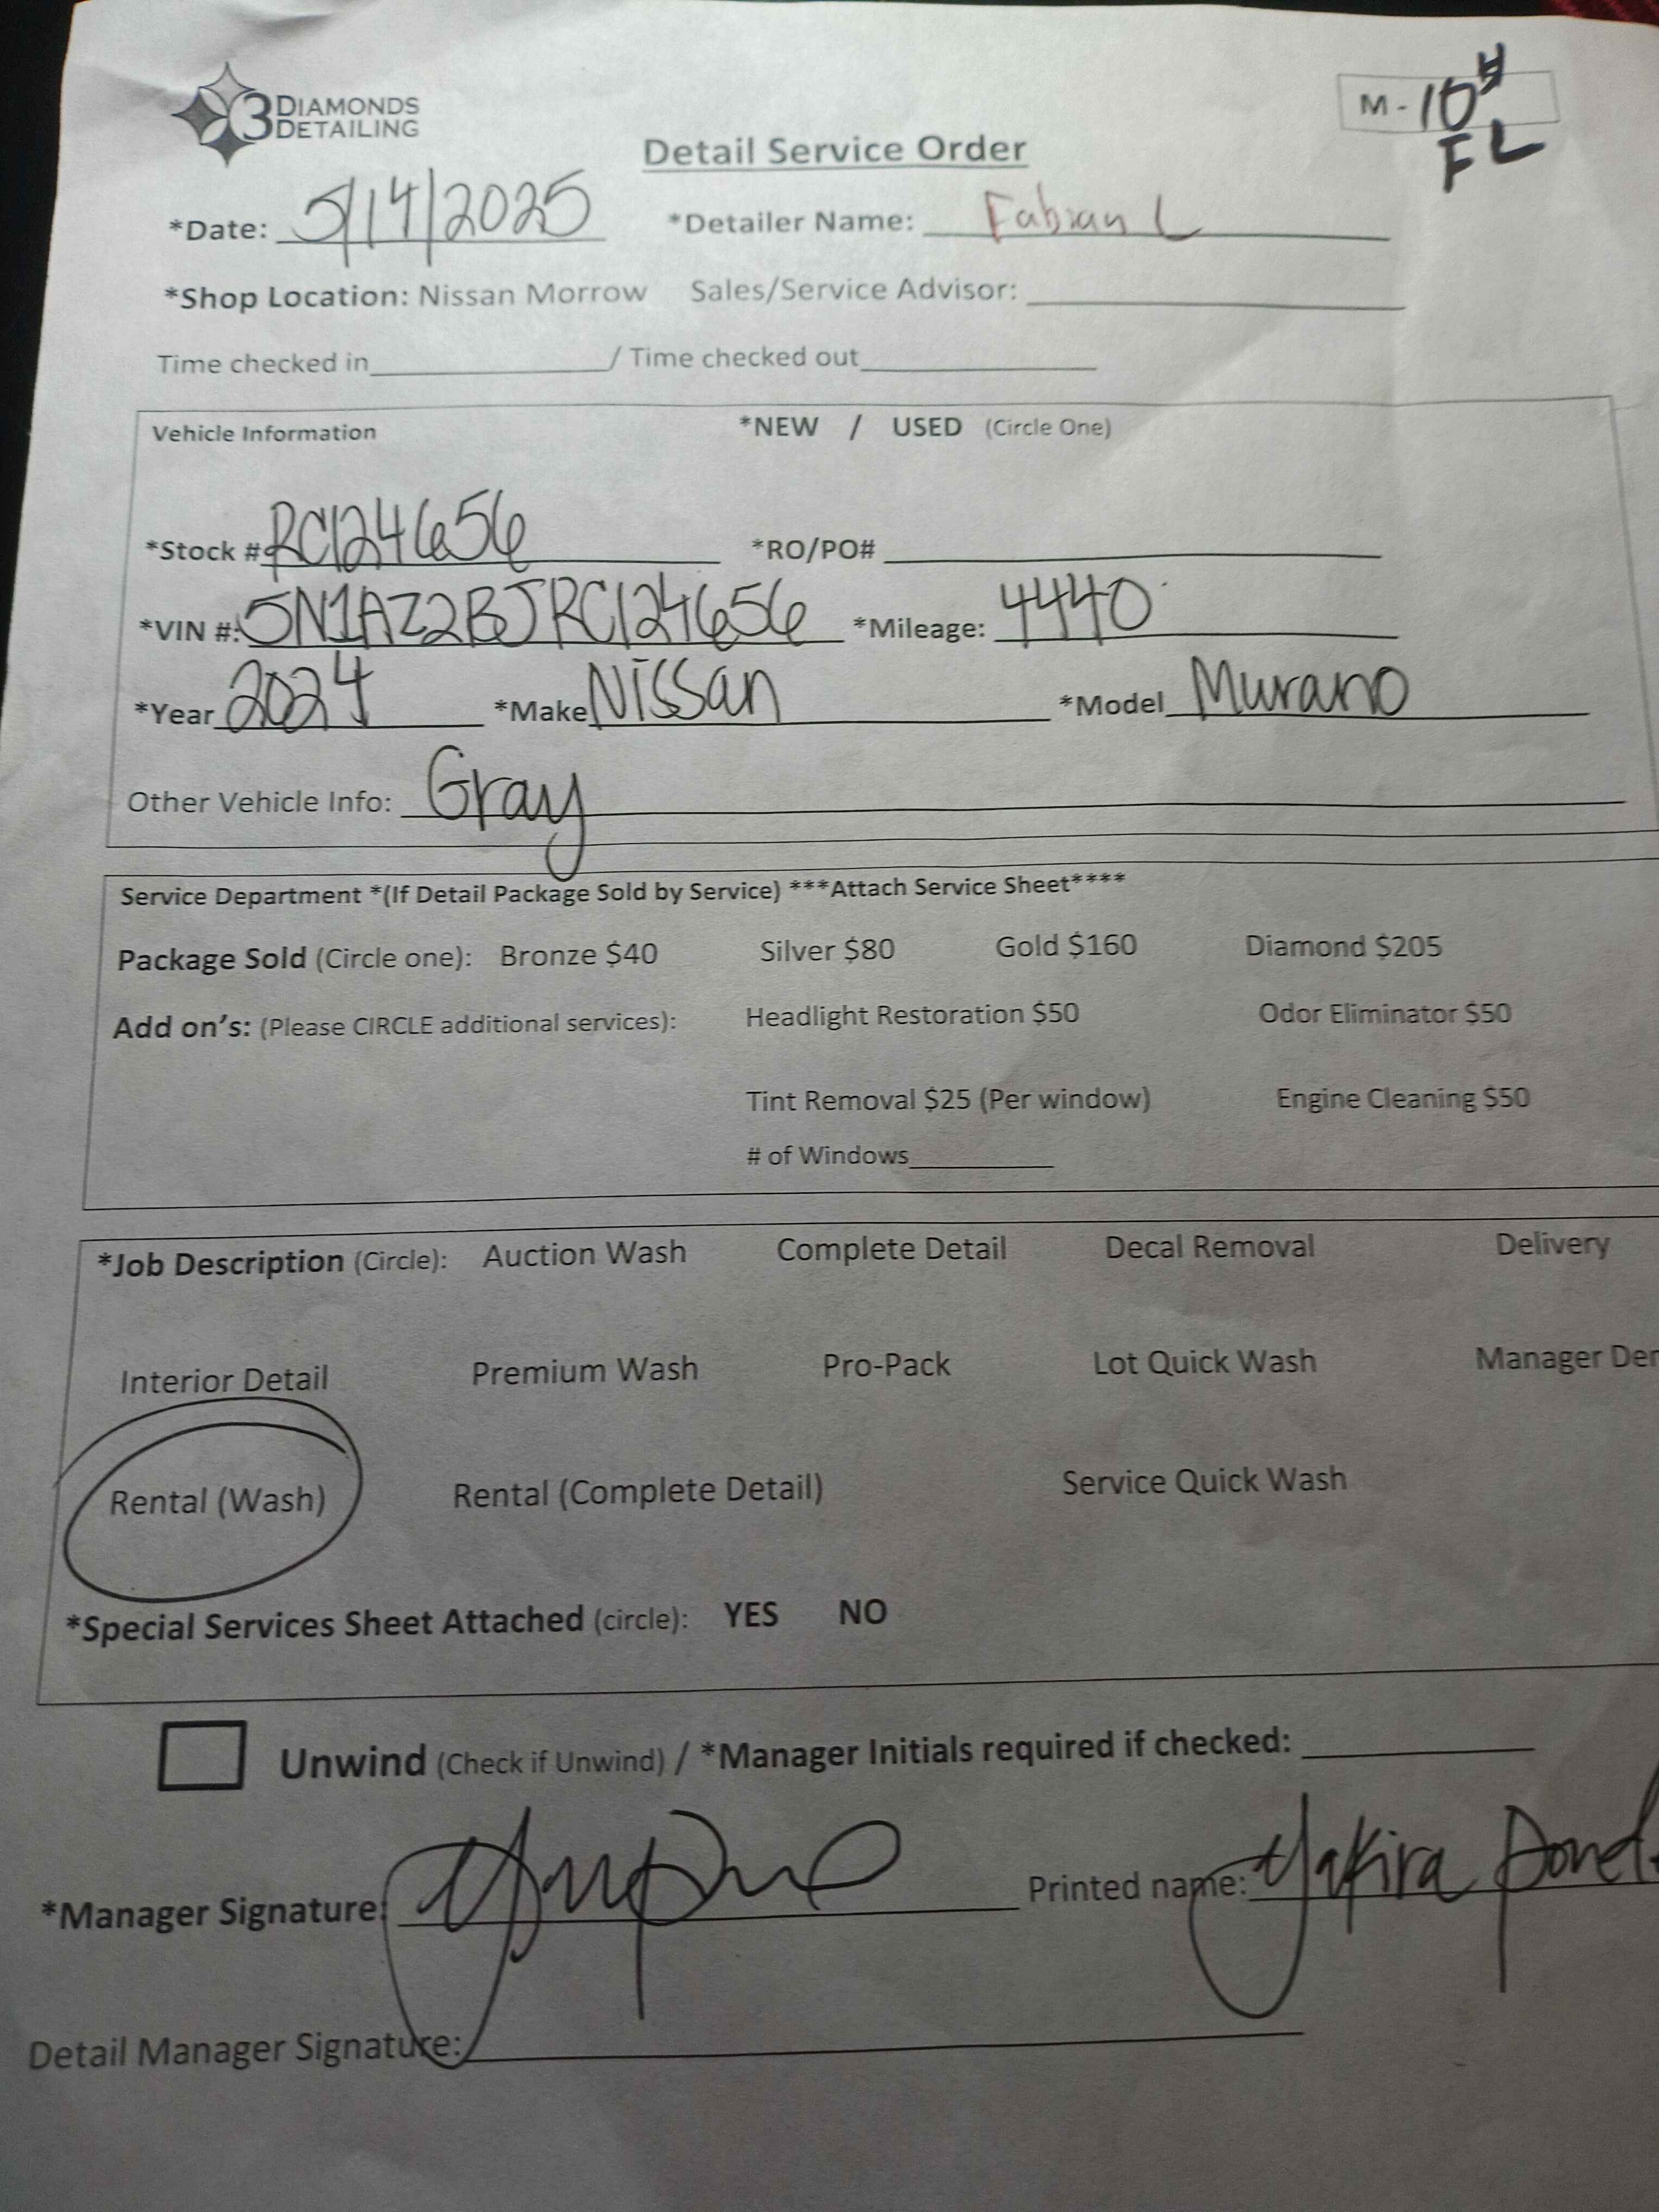 3 DIAMONDS
DETAILING
M - 10 #
FL
Detail Service Order
*Date: 5/14/2025 *Detailer Name: Fabian L
*Shop Location: Nissan Morrow Sales/Service Advisor:
Time checked in / Time checked out
Vehicle Information *NEW / USED (Circle One)
*Stock # RC124656 *RO/PO#
*VIN #: 5N1AZ2BJRC124656 *Mileage: 4440
*Year 2024 *Make Nissan *Model Murano
Other Vehicle Info: Gray
Service Department *(If Detail Package Sold by Service) ***Attach Service Sheet****
Package Sold (Circle one): Bronze $40 Silver $80 Gold $160 Diamond $205
Add on's: (Please CIRCLE additional services): Headlight Restoration $50 Odor Eliminator $50
Tint Removal $25 (Per window) Engine Cleaning $50
# of Windows
*Job Description (Circle): Auction Wash Complete Detail Decal Removal Delivery
Interior Detail Premium Wash Pro-Pack Lot Quick Wash Manager Der
Rental (Wash) Rental (Complete Detail) Service Quick Wash
*Special Services Sheet Attached (circle): YES NO
Unwind (Check if Unwind) / *Manager Initials required if checked:
*Manager Signature: Printed name: Yakira
Detail Manager Signature: